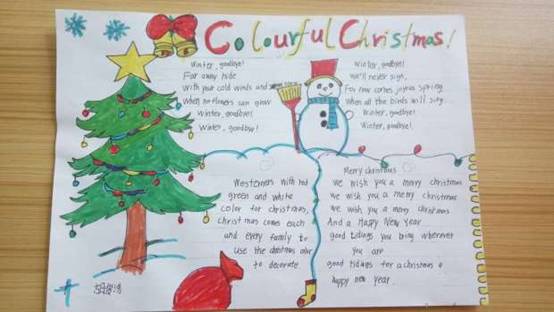 Colourful Christmas!
Winter, goodbye!
Far away hide
With your cold winds and
When no flowers can grow
Winter, goodbye!
Winter, goodbye!
Winter, goodbye!
We'll never sigh,
For now comes joyous spring
When all the birds will sing
Winter, goodbye!
Winter, goodbye!
Westerners with red
green and white
color for christmas,
christmas comes each
and every family to
use the christmas color
to decorate.
Merry christmas
we wish you a merry christmas
we wish you a merry christmas
we wish you a merry christmas
And a Happy New Year
good tidings you bring wherever
you are
good tidings for a christmas a
happy new year.